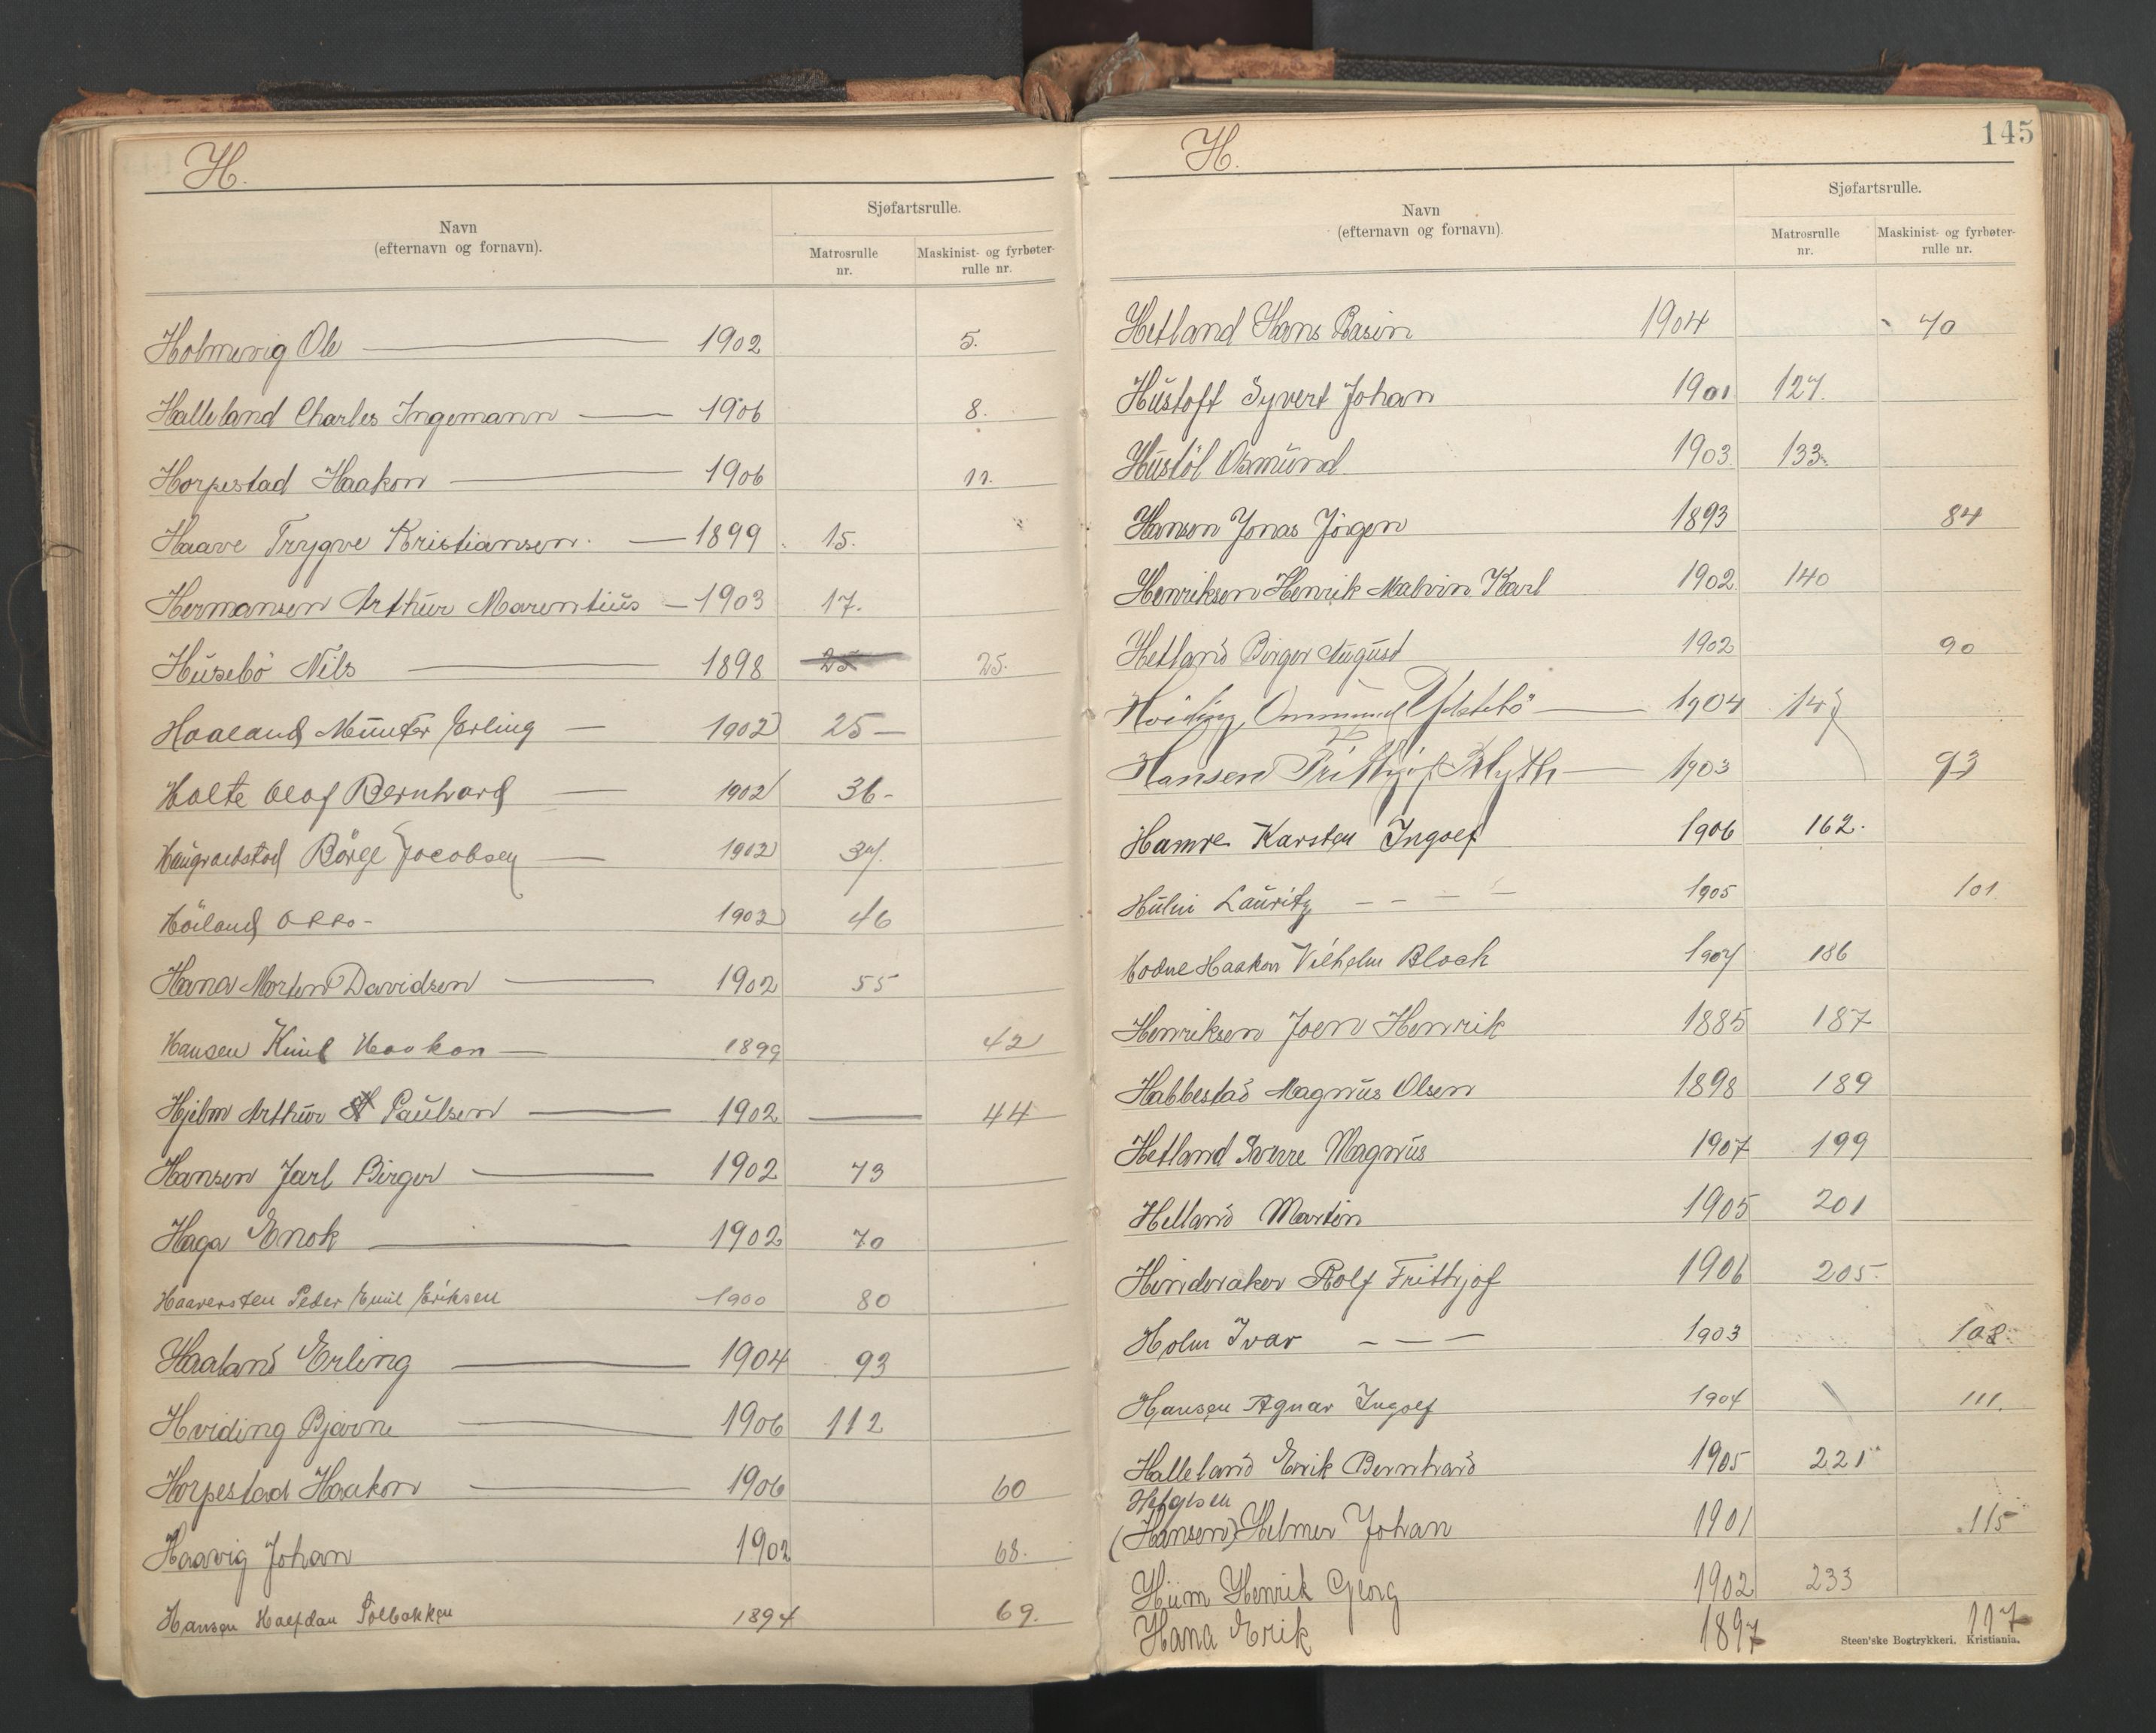 H.
Navn
(efternavn og fornavn).
Sjøfartsrulle.
Matrosrulle
nr.
Maskinist- og fyrbøter-
rulle nr.
Holmevig Ole 1902 5.
Halleland Charles Ingemann 1906 8.
Horpestad Haakon 1906 11.
Haave Trygve Kristiansen. 1899 15.
Hermansen Arthur Marentius 1903 17.
Husebö Nils 1898 25 25.
Haaland Erling 1902 25
Holte Olaf Bernhard 1902 36
Börge Jacobsen 1902 37.
Höiland Otto 1902 46
Hana Morten Davidsen 1902 55
Hansen Knut Haakon 1899 42
Hjelm Arthur Paulsen 1902 44
Hansen Jarl Birger 1902 73
Haga Enok 1902 70
Haaversten Peder Emil Eriksen 1900 80
Haaland Erling 1904 93
Hviding Bjarne 1906 112
Horpestad Haakon 1906 60
Haavig Johan 1902 68.
Hansen Halfdan Solbakken 1894 69.
H.
145
Navn
(efternavn og fornavn)
Sjøfartsrulle.
Matrosrulle
nr.
Maskinist- og fyrbøter-
rulle nr.
Hetland Hans Rasin 1904 70
Hustoft Syvert Johan 1901 127.
Hustöl Osmund 1903 133.
Hansen Jonas Jörgen 1893 84
Henriksen Henrik Malvin Karl 1902 140
Hetland Birger August 1902 90
Hviding, Ommund 1904
Hansen Frithjof Blyth 1903 93
Hamre Karsten Ingolf 1906 162.
Lauritz 1905 101
Hodne Haakon Vilhelm Bloch 1907 186
Henriksen Joen Henrik 1885 187
Habbestad Magnus Olsen 1898 189
Hetland Sverre Magnus 1907 199
Helland Martin 1905 201
Hinderaker Rolf Frithjof 1906 205.
Holm Ivar 1903 108.
Hansen Agnar Ingolf 1904 111.
Halleland Erik Bernhard 1905 221
Helgesen
(Hansen) Helmer Johan 1901 115
Hüm Henrik Georg 1902 233
Hana Erik 1897 117
Steen'ske Bogtrykkeri. Kristiania.